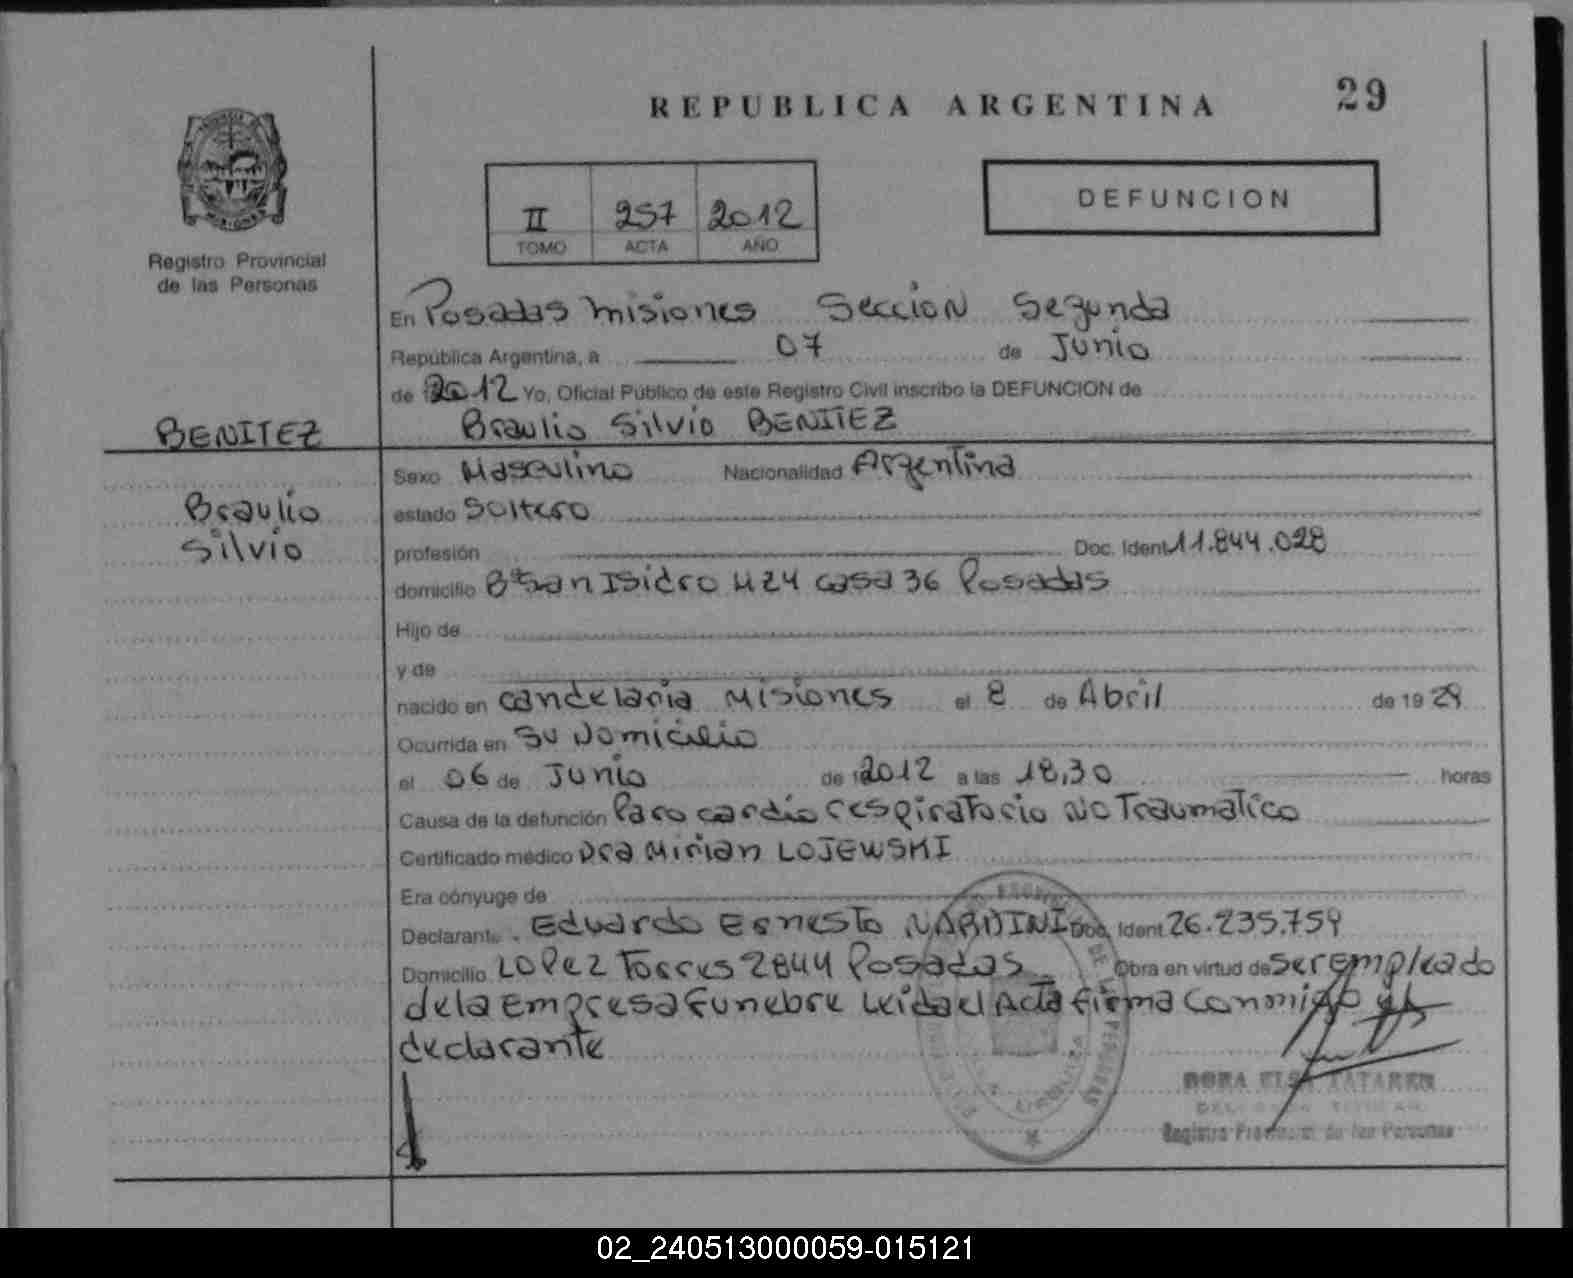 REPUBLICA ARGENTINA
29
II 257 2012
TOMO ACTA AÑO
DEFUNCION
Registro Provincial
de las Personas
En Posadas Misiones Seccion Segunda
República Argentina, a 07 de Junio
de 2012 Yo, Oficial Público de este Registro Civil inscribo la DEFUNCION de
BENITEZ
Braulio Silvio BENITEZ
Sexo Masculino Nacionalidad Argentina
Braulio
estado Soltero
Silvio
profesión Doc. Ident 11.844.028
domicilio Bº San Isidro M24 casa 36 Posadas
Hijo de
y de
nacido en Candelaria Misiones el 8 de Abril de 19 29
Ocurrida en su Domicilio
el 06 de Junio de 2012 a las 18,30 horas
Causa de la defunción Paro cardio respiratorio No Traumatico
Certificado médico Dra Mirian LOJEWSKI
Era cónyuge de
Declarante Eduardo Ernesto NARDINI Doc. Ident 26.235.759
Domicilio Lopez Torres 2844 Posadas Obra en virtud de ser empleado
de la Empresa funebre Leida el Acta firma Conmigo el
declarante
DE PERSONAS
Registro Provincial de las Personas
02_240513000059-015121